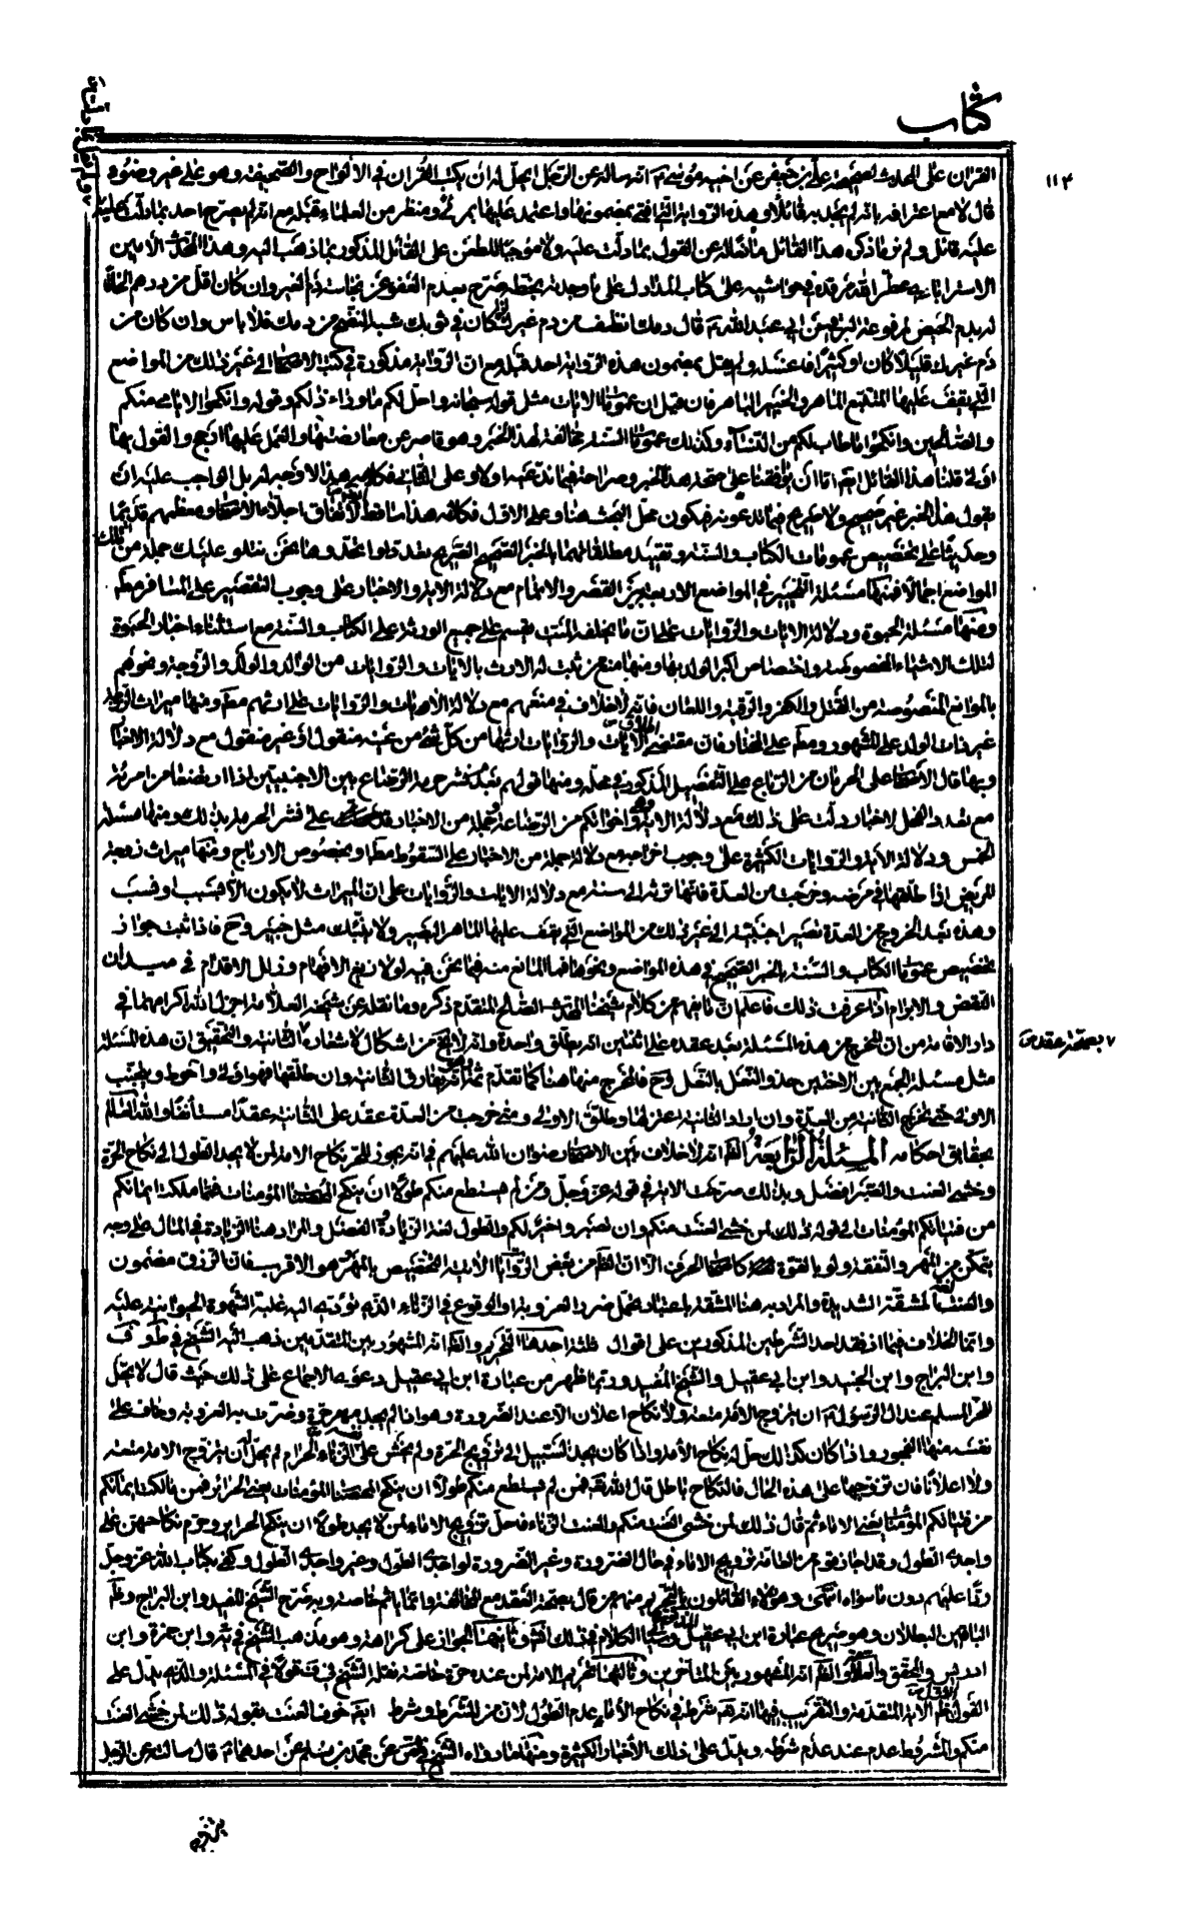 كتاب
١١٣
القران على المحدث لصحيحة علي بن جعفر عن اخيه موسى ع انه ساله عن الرجل ايحل له ان يكتب القران في الالواح والصحيفة وهو على غير وضوء
قال لا مع اعترافه بانه لم يجد به قائلا وهذه الرواية التي افتى بمضمونها واعتمد عليها بمرئى ومنظر من العلماء قبله مع انه لم يصرح احد بما دلت عليه
عليه قائل ولم نر ما ذكره هذا القائل مانعا له عن القول بما دلت عليه ولا موجبا للطعن على القائل المذكور بما ذهب اليه وهذا المحدث الامين
الاسترابادي عطر الله مرقده في حواشيه على كتاب المدارك على ما وجدته بخطه صرح بعدم العفو عن نجاسة دم الغير وان كان اقل من درهم الحاقا
له بدم الحيض لمرفوعة البرقي عن ابي عبد الله ع قال دمك انظف من دم غيرك اذا كان في ثوبك شبه النضح من دمك فلا باس وان كان من
دم غيرك قليلا كان او كثيرا فاغسله ولم يقل بمضمون هذه الرواية احد قبله مع ان الرواية مذكورة في كتب الاصحاب الى غير ذلك من المواضع
التي يقف عليها المتتبع الماهر والخبير الباهر فان قيل ان عمومات الايات مثل قوله سبحانه واحل لكم ما وراء ذلكم وقوله وانكحوا الايامى منكم
والصالحين وانكحوا ما طاب لكم من النساء وكذلك عمومات السنة مخالفة لهذا الخبر وهو قاصر عن معارضتها والعمل عليها ارجح والقول بها
اولى قلنا هذا القائل
يقول هذا الخبر غير صحيح ولا صريح فيما ندعونه فيكون محل البحث هنا وعلى الاول فكلامه هذا ساقط لاتفاق اجلاء الاصحاب ومعظمهم قديما
وحديثا على تخصيص عمومات الكتاب والسنة وتقييد مطلقاتهما بالخبر الصحيح الصريح بعد تعدد او اتحد وها نحن نتلو عليك جملة من تلك
المواضع اجمالا فمنها مسئلة التخيير في المواضع الاربعة بين القصر والاتمام مع دلالة الاية والاخبار على وجوب التقصير على المسافر مطلقا
ومنها مسئلة الحبوة ودلالة الايات والروايات على ان ما يخلفه الميت يقسم على جميع الورثة على الكتاب والسنة مع استثناء اخبار الحبوة
لتلك الاشياء المخصوصة واختصاص اكبر الولد بها ومنها منع من ثبت له الارث بالايات والروايات من الوالد والولد والزوجة ونحوهم
بالموانع المنصوصة من القتل والكفر والرقية واللعان فانه لا خلاف في منعهم مع دلالة الايات والروايات على ارثهم مطلقا ومنها ميراث الزوجة
غير ذات الولد على المشهور ومطلقا على المختار فان مقتضى الايات والروايات ارثها من كل شئ من عين منقول او غير منقول مع دلالة الاخبار
وبها قال الاصحاب على الحرمان من الرباع على التفصيل المذكور في محله ومنها قولهم بعدم نشر حرمة الرضاع بين الاجنبيين اذا ارتضعا من امرئة
مع تعدد الفحل لاخبار دلت على ذلك مع دلالة الاية واخواتكم من الرضاعة وجملة من الاخبار على نشر الحرمة بذلك ومنها مسئلة
الخمس ودلالة الاية والروايات الكثيرة على وجوب اخراجه مع دلالة جملة من الاخبار على السقوط مطلقا وبخصوص الارباح ومنها ميراث زوجة
المريض اذا طلقها في مرضه وخرجت من العدة فانها ترثه الى سنة مع دلالة الايات والروايات على ان الميراث لا يكون الا بسبب او نسب
وهذه بعد الخروج من العدة تصير اجنبية الى غير ذلك من المواضع التي يقف عليها الماهر البصير ولا ينبئك مثل خبير وح فاذا ثبت جواز
تخصيص عمومات الكتاب والسنة بالخبر الصحيح في هذه المواضع ونحوها فما المانع منه فيما نحن فيه لولا زيغ الافهام وزلل الاقدام في ميدان
النقض والابرام اذا عرفت ذلك فاعلم ان ما يفهم من كلام شيخنا المحدث الصالح المتقدم ذكره وما نقله عن شيخه العلامة اجزل الله اكرامهما في
دار الاقامة من ان المخرج من هذه المسئلة بعد عقده على اثنتين انه يطلق واحدة وانه لا يخ من اشكال لاشعاره الثانية والتحقيق ان هذه المسئلة
٧ بصحة عقد ص
مثل مسئلة الجمع بين الاختين حذو النعل بالنعل وح فالمخرج منها هنا كما تقدم ثمة انه يفارق الثانية وان طلقها فهو اولى واحوط ويجتنب
الاولى حتى تخرج الثانية من العدة وان اراد الثانية اعتزلها وطلق الاولى ومتى خرجت من العدة عقد على الثانية عقدا مستانفا والله العالم
بحقايق احكامه المسئلة الرابعة الظ انه لا خلاف بين الاصحاب رضوان الله عليهم في انه يجوز للحر نكاح الامة لمن لا يجد الطول الى نكاح الحرة
وخشي العنت والصبر افضل وبذلك صرحت الاية في قوله عز وجل ومن لم يستطع منكم طولا ان ينكح المحصنات المؤمنات فمما ملكت ايمانكم
من فتياتكم المؤمنات الى قوله ذلك لمن خشي العنت منكم وان تصبروا خير لكم والطول لغة الزيادة والفضل والمراد هنا الزيادة في المال على وجه
يتمكن من المهر والنفقة ولو بالقوة كاصحاب الحرف الا ان الظ من بعض الروايات الاتية التخصيص بالمهر وهو الاقرب فان الرزق مضمون
والعنت لغة المشقة الشديدة والمراد به هنا المشقة باعتبار تحمل ضرر العزوبة او الوقوع في الزناء الذي تؤدي اليه غلبة الشهوة الحيوانية عليه
وانما الخلاف فيما اذا فقد احد الشرطين المذكورين على اقوال ثلثة احدها التحريم والظ انه المشهور بين المتقدمين ذهب اليه الشيخ في ط وف
وابن البراج وابن الجنيد وابن ابي عقيل والشيخ المفيد وربما ظهر من عبارة ابن ابي عقيل دعوى الاجماع على ذلك حيث قال لا يحل
للحر المسلم عند ال الرسول ع ان يتزوج الامة متعة ولا نكاح اعلان الا عند الضرورة وهو اذا لم يجد مهر حرة وضرت به العزوبة وخاف على
نفسه منها الفجور واذا كان كذلك حل له نكاح الامة واذا كان يجد السبيل الى تزويج الحرة ولم يخش على نفسه الزناء حرام لم يحل ان يتزوج الامة متعة
ولا اعلانا فان تزوجها على هذه الحال فالنكاح باطل قال الله تعالى فمن لم يستطع منكم طولا ان ينكح المحصنات المؤمنات يعني الحرائر فمن ما ملكت ايمانكم
من فتياتكم المؤمنات يعني الاماء ثم قال ذلك لمن خشي العنت منكم والعنت الزناء فاحل تزويج الاماء لمن لا يجد طولا ان ينكح الحراير وحرم نكاحهن على
واجدي الطول وقد اجاز قوم من العامة تزويج الاماء في حال الضرورة وغير الضرورة لواجدي الطول وغير واجدي الطول وكفى بكتاب الله عز وجل
ردا عليهم دون ما سواه انتهى وهؤلاء القائلون بالتحريم منهم من قال بصحة العقد مع المخالفة وانما ياثم خاصة وبه صرح الشيخ المفيد وابن البراج وظ
الباقين البطلان وهو صريح عبارة ابن ابي عقيل وسياتي الكلام في ذلك انشاء الله وثانيها الجواز على كراهة وهو مذهب الشيخ في يه وابن حمزة وابن
ادريس والمحقق والعلامة الظ انه المشهور بين المتاخرين وثالثها تحريم الامة لمن عنده حرة خاصة نقله الشيخ في ف قولا في المسئلة والذي يدل على
القول الاول ظ الاية المتقدمة والتقريب فيها انه تعالى شرط في نكاح الاماء عدم الطول لان من للشرط وشرط ايضا خوف العنت بقوله ذلك لمن خشي العنت
منكم والمشروط عدم عند عدم شرطه ويدل على ذلك الاخبار الكثيرة ومنها ما رواه الشيخ في الصحيح عن محمد بن مسلم عن احدهما ع قال سالته عن الرجل
يتزوج